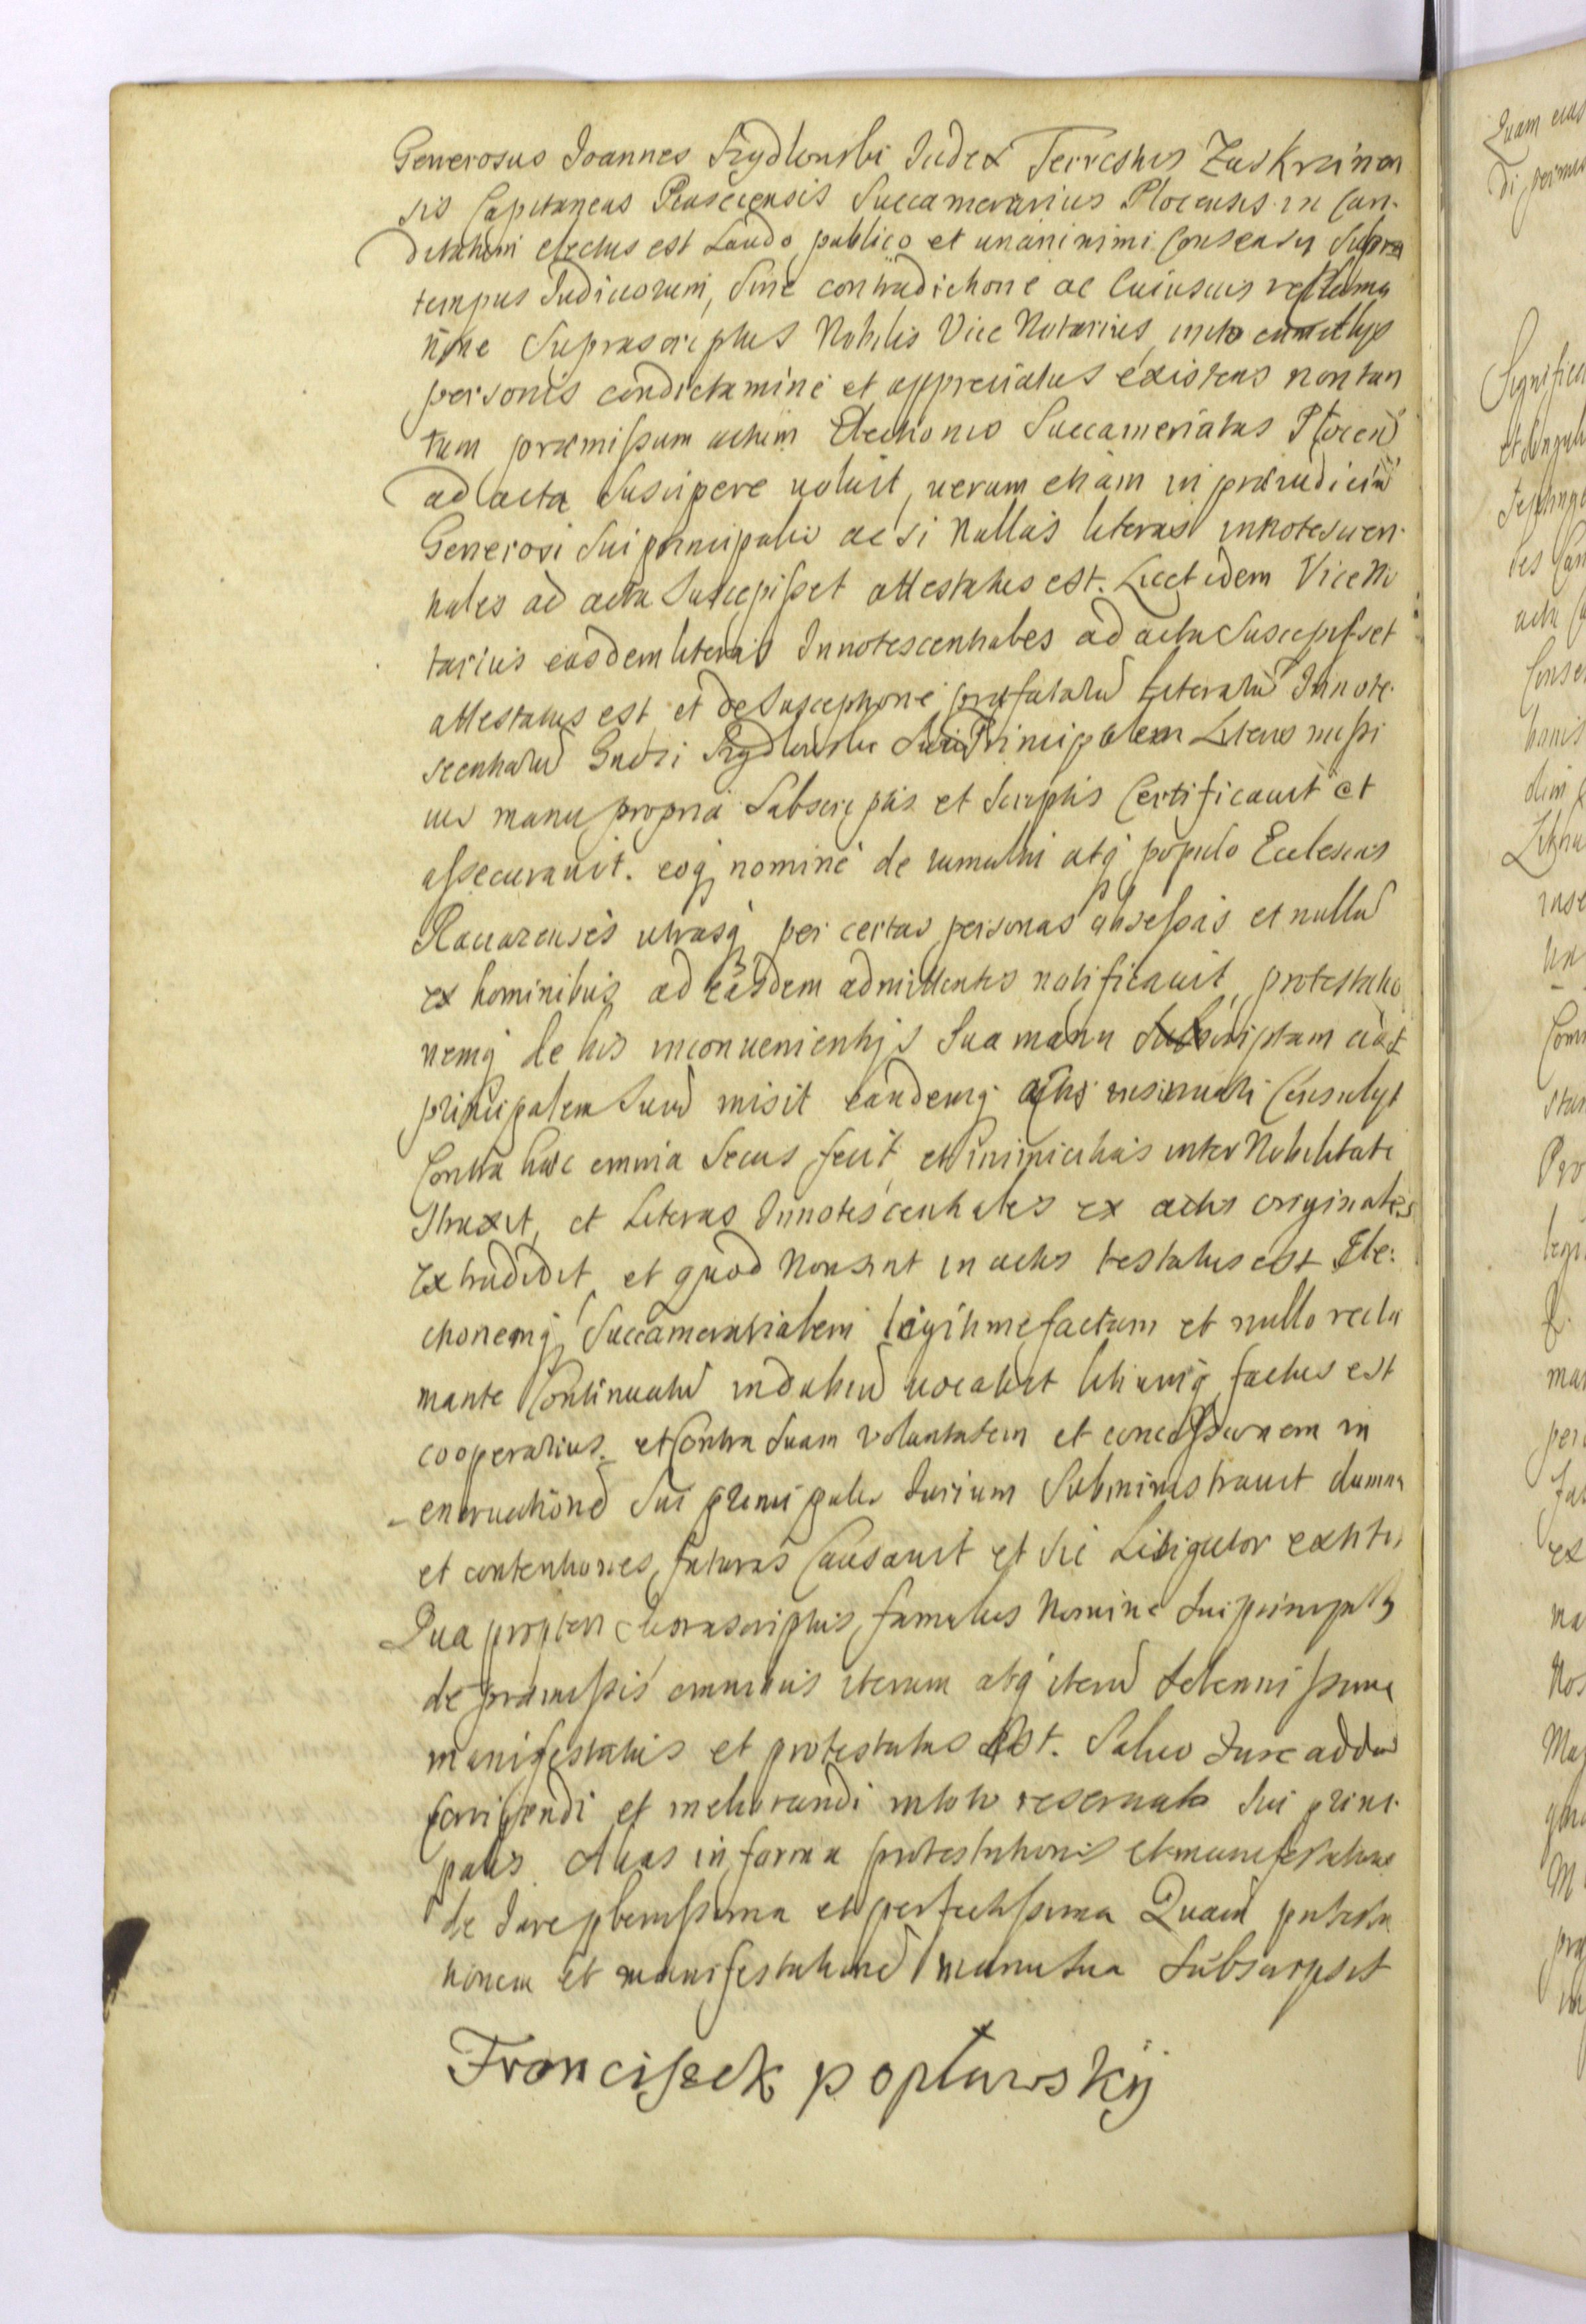 Generosus Joannes Szydlowski Iudex Terrestris Zaskrzinen
sis Capitaneus Rascicensis Succamerarius Plocensis in Can-
ditatum electus est Laudo publico et unaninimi Consensu Supra
tempus Iudiciorum, Sine contradictione ac Cuiusuis reclama
tione Suprascriptus Nobilis Vice Notarius, inito cum illys
personis condictamine et appreciatus existens non tan
tum præmissum actum Electionis Succameriatus Plocen
ad acta Suscipere noluit, uerum etiam in præiudiciu
Generosi Sui principalis ac si Nullas literas innotescen-
tiales ad acta Suscepisset attestatus est. Licet idem Vice No
tarius easdem literas Innotescentiales ad acta Suscepisset
attestatus est et de Susceptione præfataru Literaru Innote-
scentialiu Gnosi Szydlowski Sui Principalem Literis missi
uis manu propria Subscriptis et Scriptis Certificauit et
assecurauit. eoq nomine de tumultu atq populo Ecclesias
Raciazenses utrasq per certas personas obsessas et nullu
ex hominibus ad easdem admittentes notificauit, protestatio
nemq de his inconuenientijs Sua manu Subscriptam ad
principalem Suu misit eandemq actis insinuari Consulyt
Contra hæc omnia Secus fecit, et inimicitias inter Nobilitate
Struxit, et Literas Innotescentiales ex actis originales
extradidit, et quod Non sint in actis testatus est Ele-
ctionemq Succamerarialem legitime factam et nullo recla
mante Continuatu indubiu uocabit litiumq factus est
cooperarius. et Contra Suam voluntatem et concessionem in
eneruatione Sui principalis Iurium Subministrauit damna
et contentiones futuras Causauit et Sic Litigator extiti
Qua propter Suprascriptus famulus Nomine Sui principalis
de præmissis omnibus iterum atq iteru Solennissime
manifestatus et protestatus est. Saluo Iure addi
Corrigendi et meliorandi in toto reseruato Sui princi-
palis. Alias in forma protestationis et manifestationis
de Iure plenissima et perfectissima Quam protesta
tionem et manifestatione manu sua Subscripsit
Franciszek popławskij